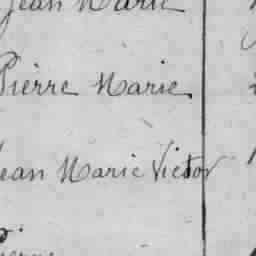 Jean Marie
Pierre Marie
Jean Marie Victor